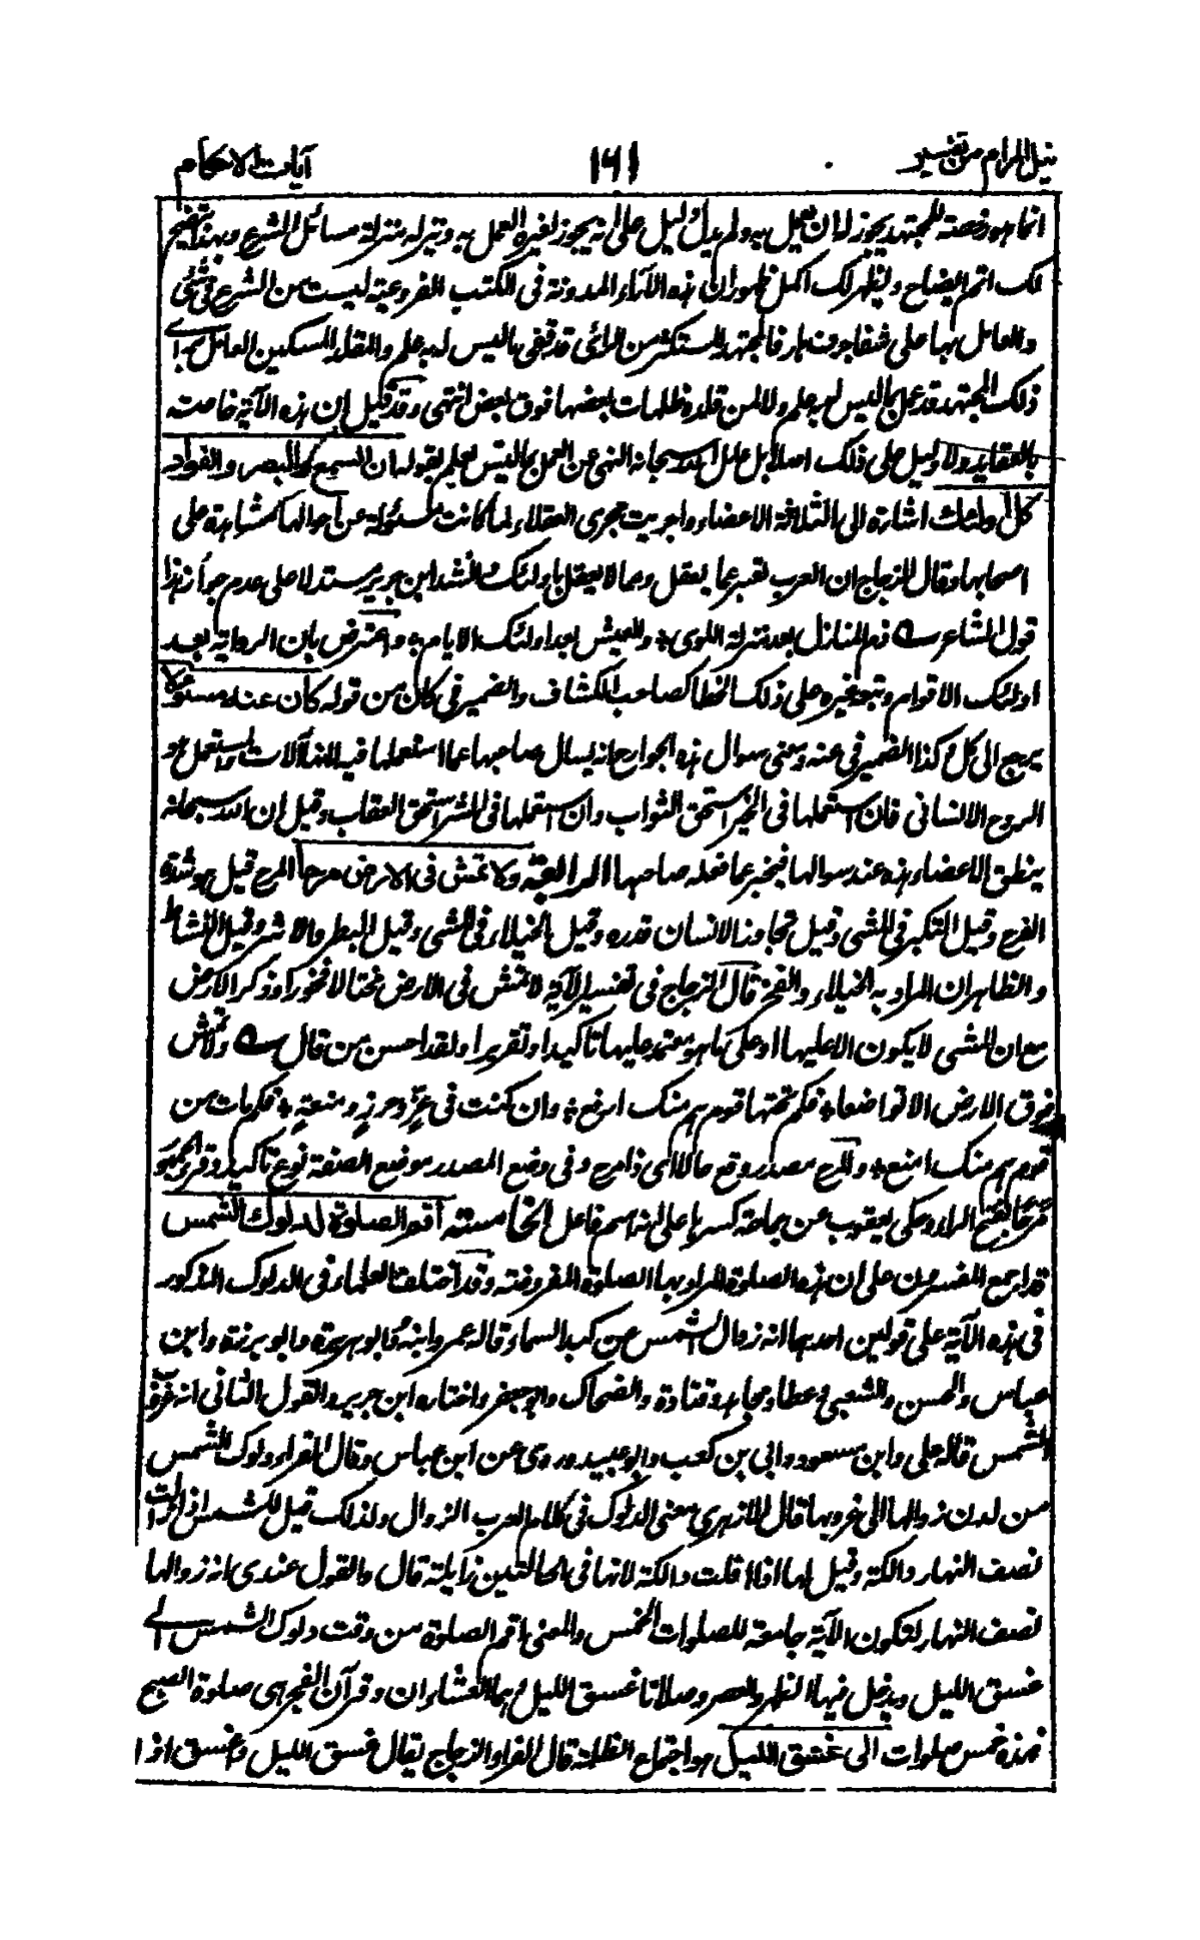 نيل المرام من تفسير ١٦١ آيات الاحكام
انما هو رخصة للمجتهد يجوز له ان يعمل به ولم يدل دليل على انه يجوز لغيره العمل به وتنزيله منزلة مسائل الشرع وبهذا يتضح
لك اتم ايضاح ويظهر لك اكمل ظهور ان هذه الآراء المدونة فى الكتب الفروعية ليست من الشرع فى شئ
والعامل بها على شفا جرف هار فالمجتهد المستكثر من الرائى قد قفى ما ليس له به علم والمقلد المسكين العامل براى
ذلك المجتهد قد عمل بما ليس له به علم ولا لمن قلده ظلمات بعضها فوق بعض انتهى وقد قيل ان هذه الآية خاصة
بالعقايد ولا دليل على ذلك اصلا بل علل الله سبحانه النهى عن العمل بما ليس بعلم بقوله ان السمع والبصر والفواد
كل اولئك اشارة الى الثلاثة الاعضاء واجريت مجرى العقلاء لما كانت مسئولة عن احوالها شاهدة على
اصحابها وقال الزجاج ان العرب تعبر عما يعقل وعما لا يعقل باولئك وانشد ابن جرير مستدلا على عدم جواز هذا
قول الشاعر ذم المنازل بعد منزلة اللوى ؛ والعيش بعد اولئك الايام ؛ واعترض بان الرواية بعد
اولئك الاقوام وتبعه غيره على ذلك الخطا كصاحب الكشاف والضمير فى كان من قوله كان عنه مسئولا
يرجع الى كل وكذا الضمير فى عنه ومعنى سوال هذه الجوارح انه يسال صاحبها عما استعملها فيه لانها آلات والمستعمل هو
الروح الانسانى فان استعملها فى الخير استحق الثواب وان استعملها فى الشر استحق العقاب وقيل ان الله سبحانه
ينطق الاعضاء هذه عند سوالها فيخبر عما فعله صاحبها الرابعة ولا تمش فى الارض مرحا المرح قيل هو شدة
الفرح وقيل التكبر فى المشى وقيل تجاوز الانسان قدره وقيل الخيلاء فى المشى وقيل البطر والاشر وقيل النشاط
والظاهر ان المراد به الخيلاء والفخر قال الزجاج فى تفسير الآية لا تمش فى الارض مختالا فخورا وذكر الارض
مع ان المشى لا يكون الا عليها او على ما هو معتمد عليها تاكيدا وتقريرا ولقد احسن من قال ولا تمش
فوق الارض الا تواضعا ؛ فكم تحتها قوم هم منك ارفع ؛ وان كنت فى عزّ وحرزٍ ومنعةٍ ؛ فكم مات من
قوم هم منك امنع ؛ والمرح مصدر وقع حالا اى ذا مرح وفى وضع المصدر موضع الصفة نوع تاكيد وقرء الجمهور
مرحا بفتح الراء وحكى يعقوب عن جماعة كسرها على انه اسم فاعل الخامسة اقم الصلوة لدلوك الشمس
قد اجمع المفسرون على ان هذه الصلوة المراد بها الصلوة المفروضة وقد اختلف العلماء فى الدلوك المذكور
فى هذه الآية على قولين احدهما انه زوال الشمس عن كبد السماء قاله عمر وابنه وابو هريرة وابو برزة وابن
عباس والحسن والشعبى وعطاء ومجاهد وقتادة والضحاك وابو جعفر واختاره ابن جرير والقول الثانى انه غروب
الشمس قاله على وابن مسعود وابى بن كعب وابو عبيد وروى عن ابن عباس وقال الفراء دلوك الشمس
من لدن زوالها الى غروبها قال الازهرى معنى الدلوك فى كلام العرب الزوال ولذلك قيل للشمس اذا زالت
نصف النهار دالكة وقيل لها اذا افلت دالكة لانها فى الحالتين زايلة قال والقول عندى انه زوالها
نصف النهار لتكون الآية جامعة للصلوات الخمس والمعنى اقم الصلوة من وقت دلوك الشمس الى
غسق الليل ويدخل فيها الظهر والعصر وصلاتا غسق الليل وهما العشاءان وقرآن الفجر هى صلوة الصبح
فهذه خمس صلوات الى غسق الليل هو اجتماع الظلمة قال الفراء والزجاج يقال غسق الليل واغسق اذا